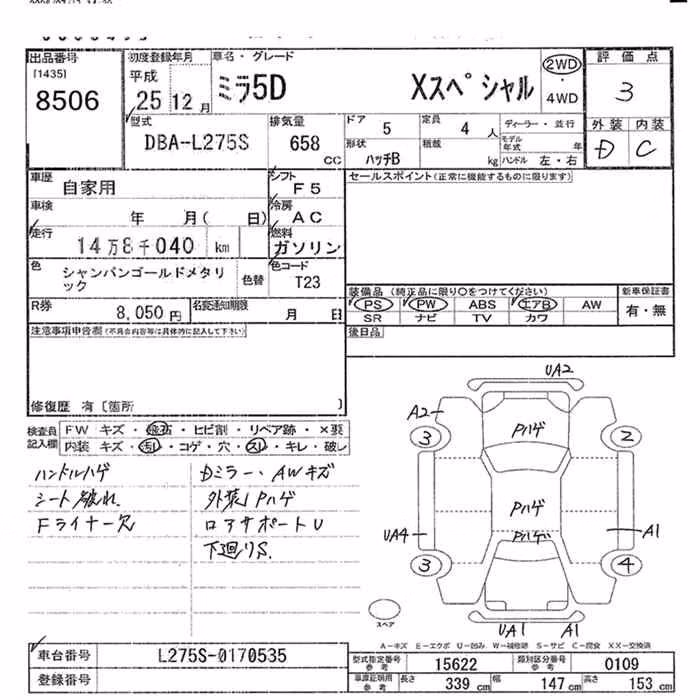 出品番号 初度登録年月 車名・グレード 評価点
[1435] 平成 ミラ5D Xスペシャル 2WD ・ 4WD 3
8506 25 12月
型式 排気量 ドア 5 定員 4人 ディーラー・並行 外装 内装
DBA-L275S 658 CC 形状 ハッチB 積載 kg モデル年式 年 ハンドル 左・右 D C
車歴 自家用 シフト F5 セールスポイント(正常に機能するものに限ります)
車検 年 月( 日) 冷房 AC
走行 14万8千040 km 燃料 ガソリン
色 シャンパンゴールドメタリック 色替 色コード T23
装備品(純正品に限り○をつけてください) 新車保証書
R券 8,050円 名変通知期限 月 日 PS PW ABS エアB AW 有・無
SR ナビ TV カワ
注意事項申告欄(不具合内容等は具体的に記入して下さい) 後日品
修復歴 有〔箇所 〕
検査員記入欄 FW キズ・飛石・ヒビ割・リペア跡・×要
内装 キズ・汚れ・コゲ・穴・スレ・キレ・破レ
ハンドルハゲ Dミラー、AWキズ
シート破れ 外装Pハゲ
Fライナー欠 ロアサポートU
下廻りS.
UA2
A2
3 Pハゲ 2
Pハゲ
UA4 Pハゲ A1
3 4
スペア UA1 A1
A-キズ E-エクボ U-凹み W-補修跡 S-サビ C-腐食 XX-交換済
車台番号 L275S-0170535 型式指定番号 参考 15622 類別区分番号 参考 0109
登録番号 車庫証明用 参考 長さ 339cm 幅 147cm 高さ 153cm